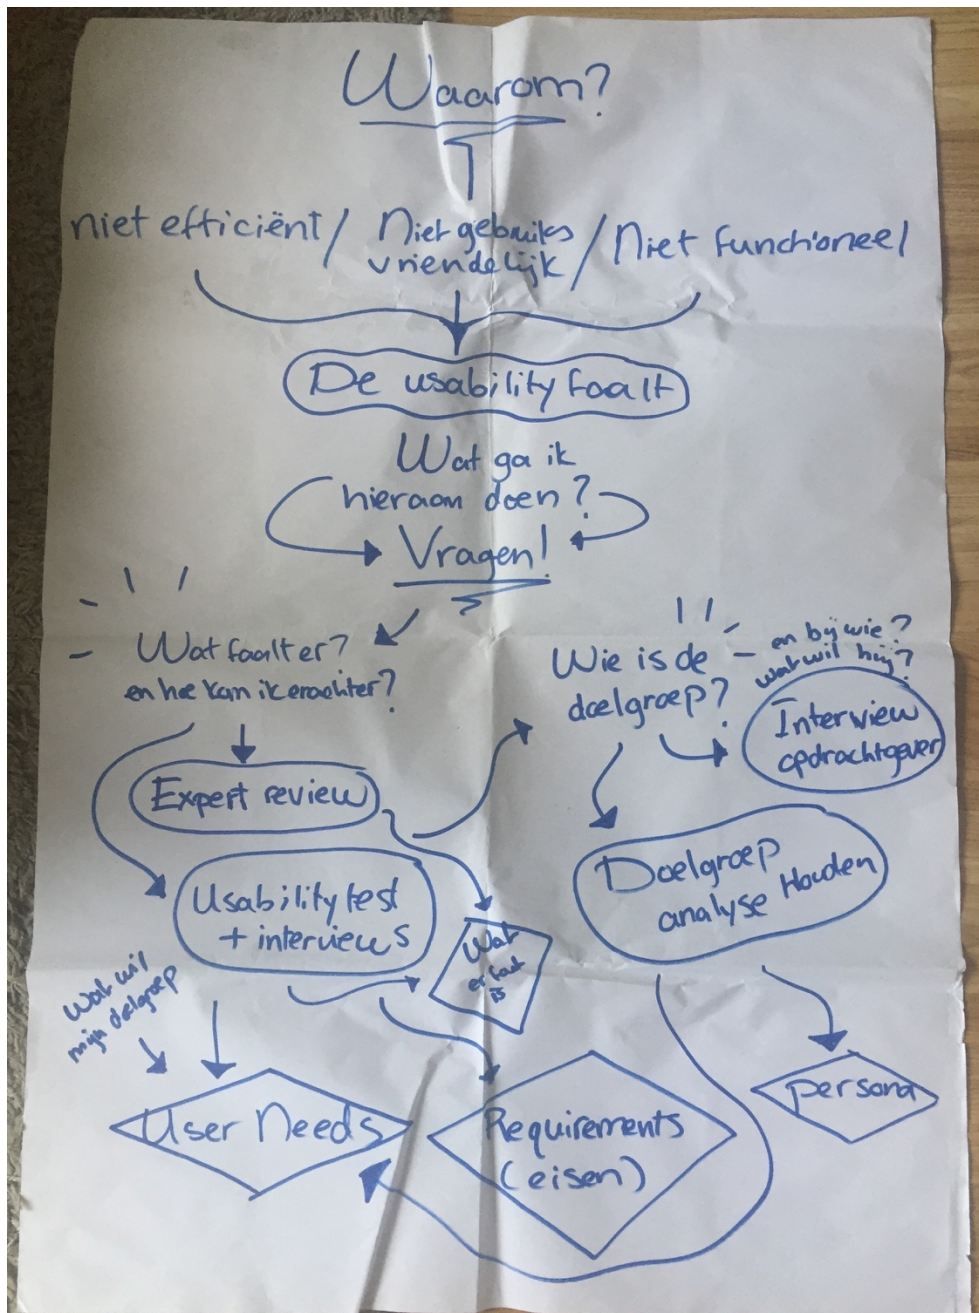 Waarom?
niet efficiënt / Niet gebruiks / Niet functioneel
vriendelijk
De usability faalt
Wat ga ik
hieraan doen?
Vragen!
Wat faalt er?
en hoe kan ik erachter?
Wie is de
doelgroep?
en bij wie?
wat wil hij?
Interview
opdrachtgever
Expert review
Usability test
+ interviews
Wat
er fout
is
Doelgroep
analyse Houden
Wat wil
mijn doelgroep
User Needs
Requirements
(eisen)
persona